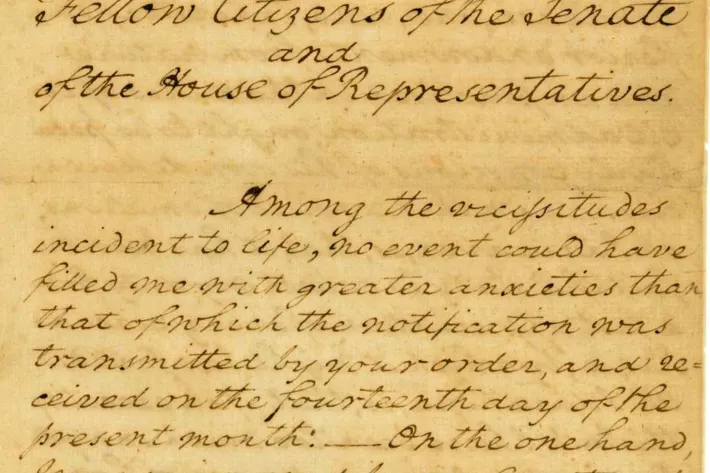 Fellow Citizens of the Senate
and
of the House of Representatives.
Among the vicissitudes
incident to life, no event could have
filled me with greater anxieties than
that of which the notification was
transmitted by your order, and re=
ceived on the fourteenth day of the
present month: — On the one hand,